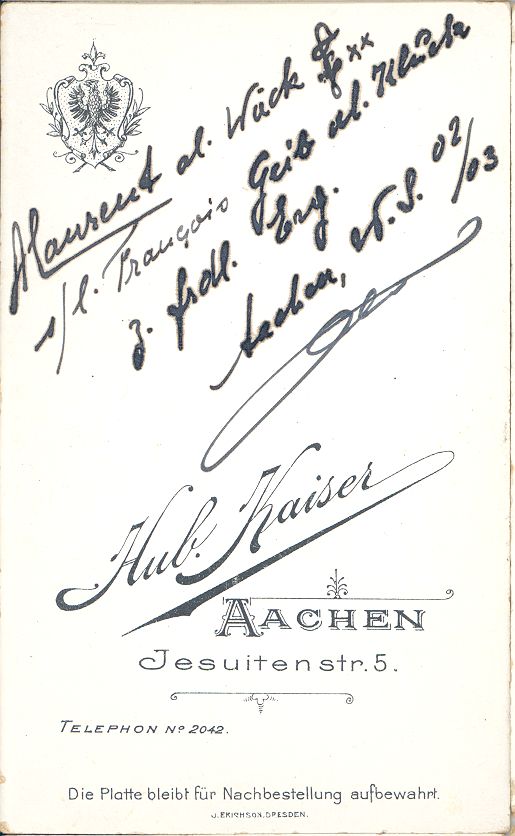 Maurent al. Wück xx
s/l. François Geib al. Klück
z. frdl. Erg.
Aachen, W.S. 02/03
Hub. Kaiser
AACHEN
Jesuitenstr. 5.
TELEPHON No 2042.
Die Platte bleibt für Nachbestellung aufbewahrt.
J. ERICHSON, DRESDEN.